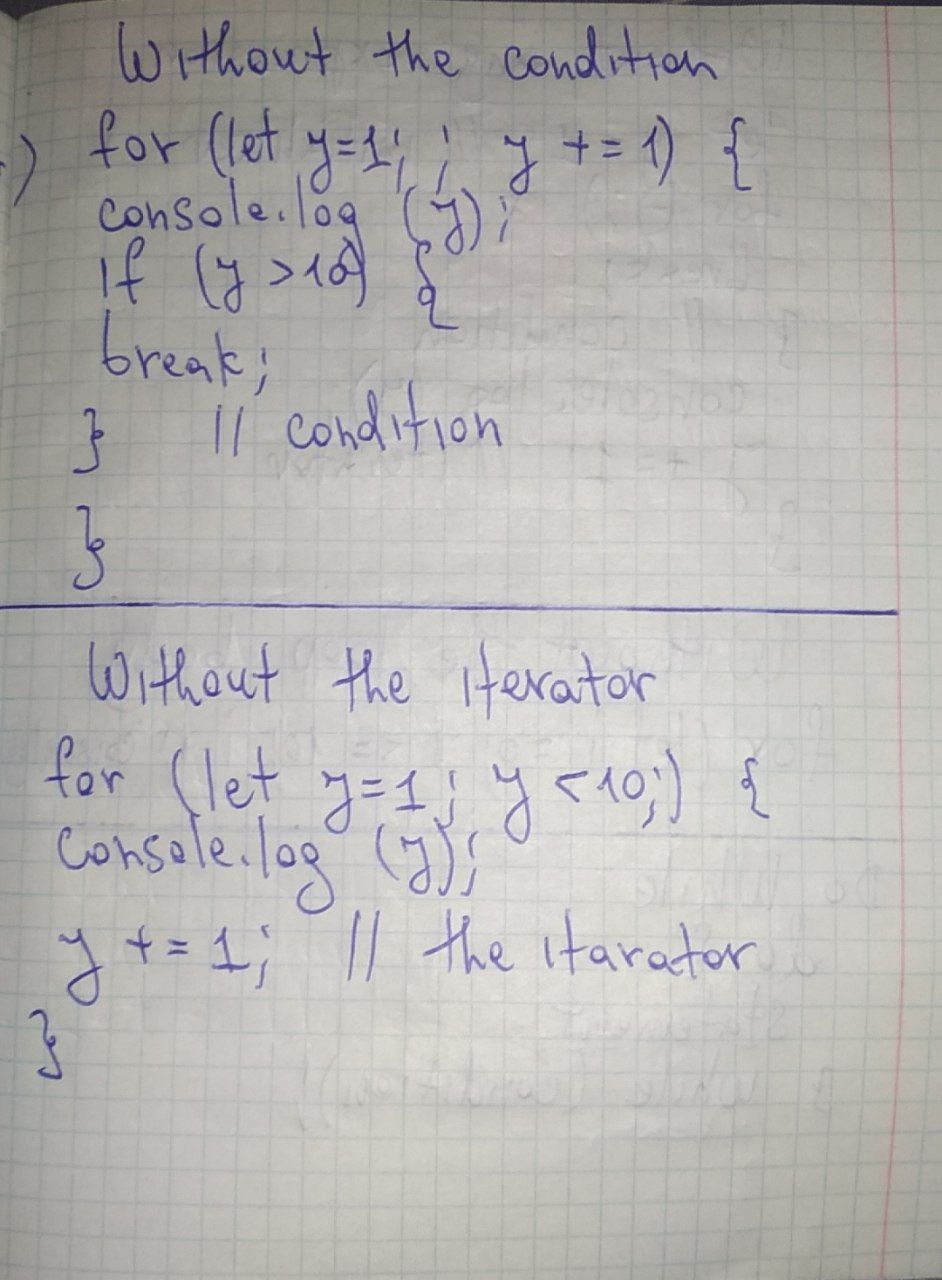 Without the condition
for (let y=1; ; y += 1) {
console.log (y);
if (y >10) {
break;
} // condition
}
Without the iterator
for (let y=1; y <10;) {
console.log (y);
y += 1; // the itarator
}